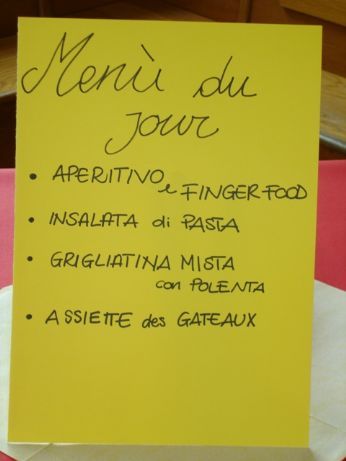 Menù du
jour
• APERITIVO
e FINGER FOOD
• INSALATA di PASTA
• GRIGLIATINA MISTA
con POLENTA
• ASSIETTE des GATEAUX